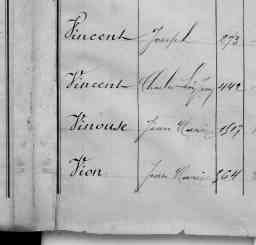 Vincent Joseph 273
Vincent Charles 442
Vinouse Jean Marie 1507
Vion Jean Marie 264